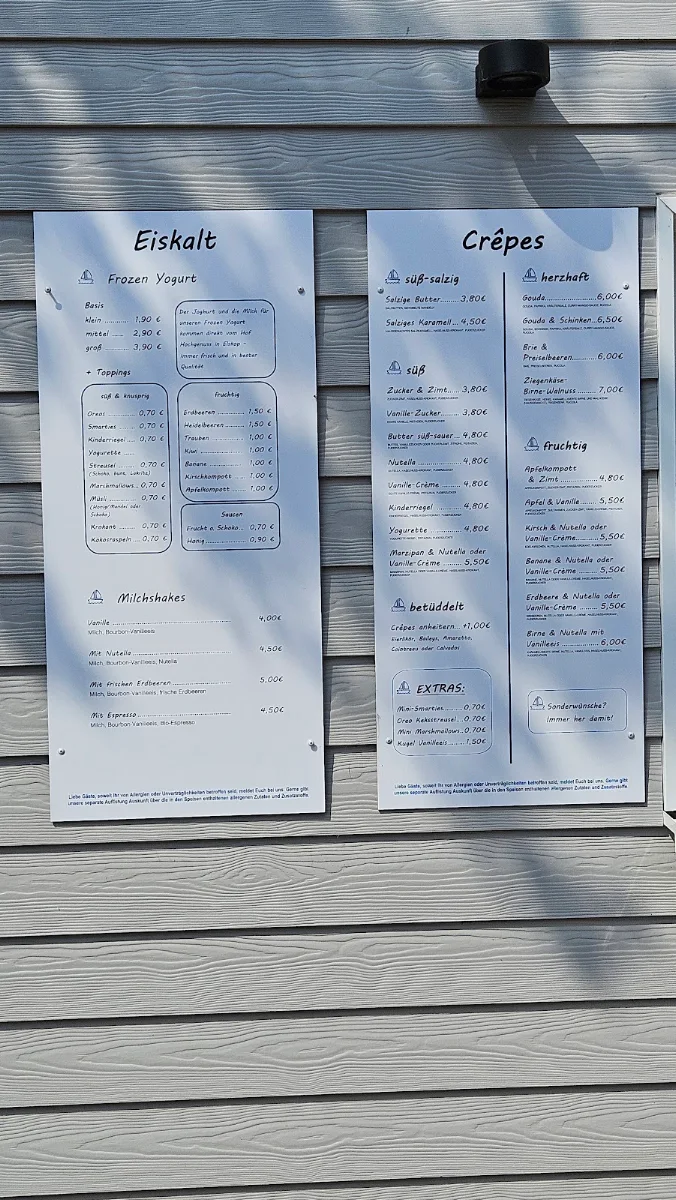 Eiskalt
Frozen Yogurt
Basis
klein ........ 1,90 €
mittel ....... 2,90 €
groß ........ 3,90 €
Der Joghurt und die Milch für
unseren Frozen Yogurt
kommen direkt vom Hof
immer frisch und in bester
Qualität
+ Toppings
süß & knusprig
Oreos ............ 0,70 €
Smarties ....... 0,70 €
Kinderriegel ... 0,70 €
Yogurette
Streusel ....... 0,70 €
(Schoko, bunt, Lakritz)
Marshmallows .. 0,70 €
Müsli ............ 0,70 €
(Honig/Mandel oder
Schoko)
Krokant ......... 0,70 €
Kokosraspeln ... 0,70 €
fruchtig
Erdbeeren ............ 1,50 €
Heidelbeeren ........ 1,50 €
Trauben .............. 1,00 €
Kiwi .................. 1,00 €
Banane ............... 1,00 €
Kirschkompott ..... 1,00 €
Apfelkompott ...... 1,00 €
Saucen
Frucht o. Schoko... 0,70 €
Honig ................. 0,90 €
Milchshakes
Vanille ........................ 4,00€
Milch, Bourbon-Vanilleeis
Mit Nutella ........................ 4,50€
Milch, Bourbon-Vanilleeis, Nutella
Mit frischen Erdbeeren ........................ 5,00€
Milch, Bourbon-Vanilleeis, frische Erdbeeren
Mit Espresso ........................ 4,50€
Milch, Bourbon-Vanilleeis, Bio-Espresso
Liebe Gäste, soweit Ihr von Allergien oder Unverträglichkeiten betroffen seid, meldet Euch bei uns. Gerne gibt
unsere separate Auflistung Auskunft über die in den Speisen enthaltenen allergenen Zutaten und Zusatzstoffe.
Crêpes
süß-salzig
Salzige Butter........ 3,80€
Salziges Karamell... 4,50€
süß
Zucker & Zimt...... 3,80€
Vanille-Zucker...... 3,80€
Butter süß-sauer ... 4,80€
Nutella ............... 4,80€
Vanille-Crème ...... 4,80€
Kinderriegel ........ 4,80€
Yogurette ............ 4,80€
Marzipan & Nutella oder
Vanille-Crème ...... 5,50€
betüddelt
Crêpes ankeitern... +1,00€
Eierlikör, Baileys, Amaretto,
Cointreau oder Calvados
EXTRAS:
Mini-Smarties ...... 0,70€
Oreo Keksstreusel.. 0,70€
Mini Marshmallows..0,70€
Kugel Vanilleeis .... 1,50€
herzhaft
Gouda.................. 6,00€
Gouda & Schinken...6,50€
Brie &
Preiselbeeren......... 6,00€
Ziegenkäse-
Birne-Walnuss ....... 7,00€
fruchtig
Apfelkompott
& Zimt ................ 4,80€
Apfel & Vanille ..... 5,50€
Kirsch & Nutella oder
Vanille-Crème ........ 5,50€
Banane & Nutella oder
Vanille-Crème ........ 5,50€
Erdbeere & Nutella oder
Vanille-Crème ........ 5,50€
Birne & Nutella mit
Vanilleeis ............. 6,00€
Sonderwünsche?
Immer her damit!
Liebe Gäste, soweit Ihr von Allergien oder Unverträglichkeiten betroffen seid, meldet Euch bei uns. Gerne gibt
unsere separate Auflistung Auskunft über die in den Speisen enthaltenen allergenen Zutaten und Zusatzstoffe.